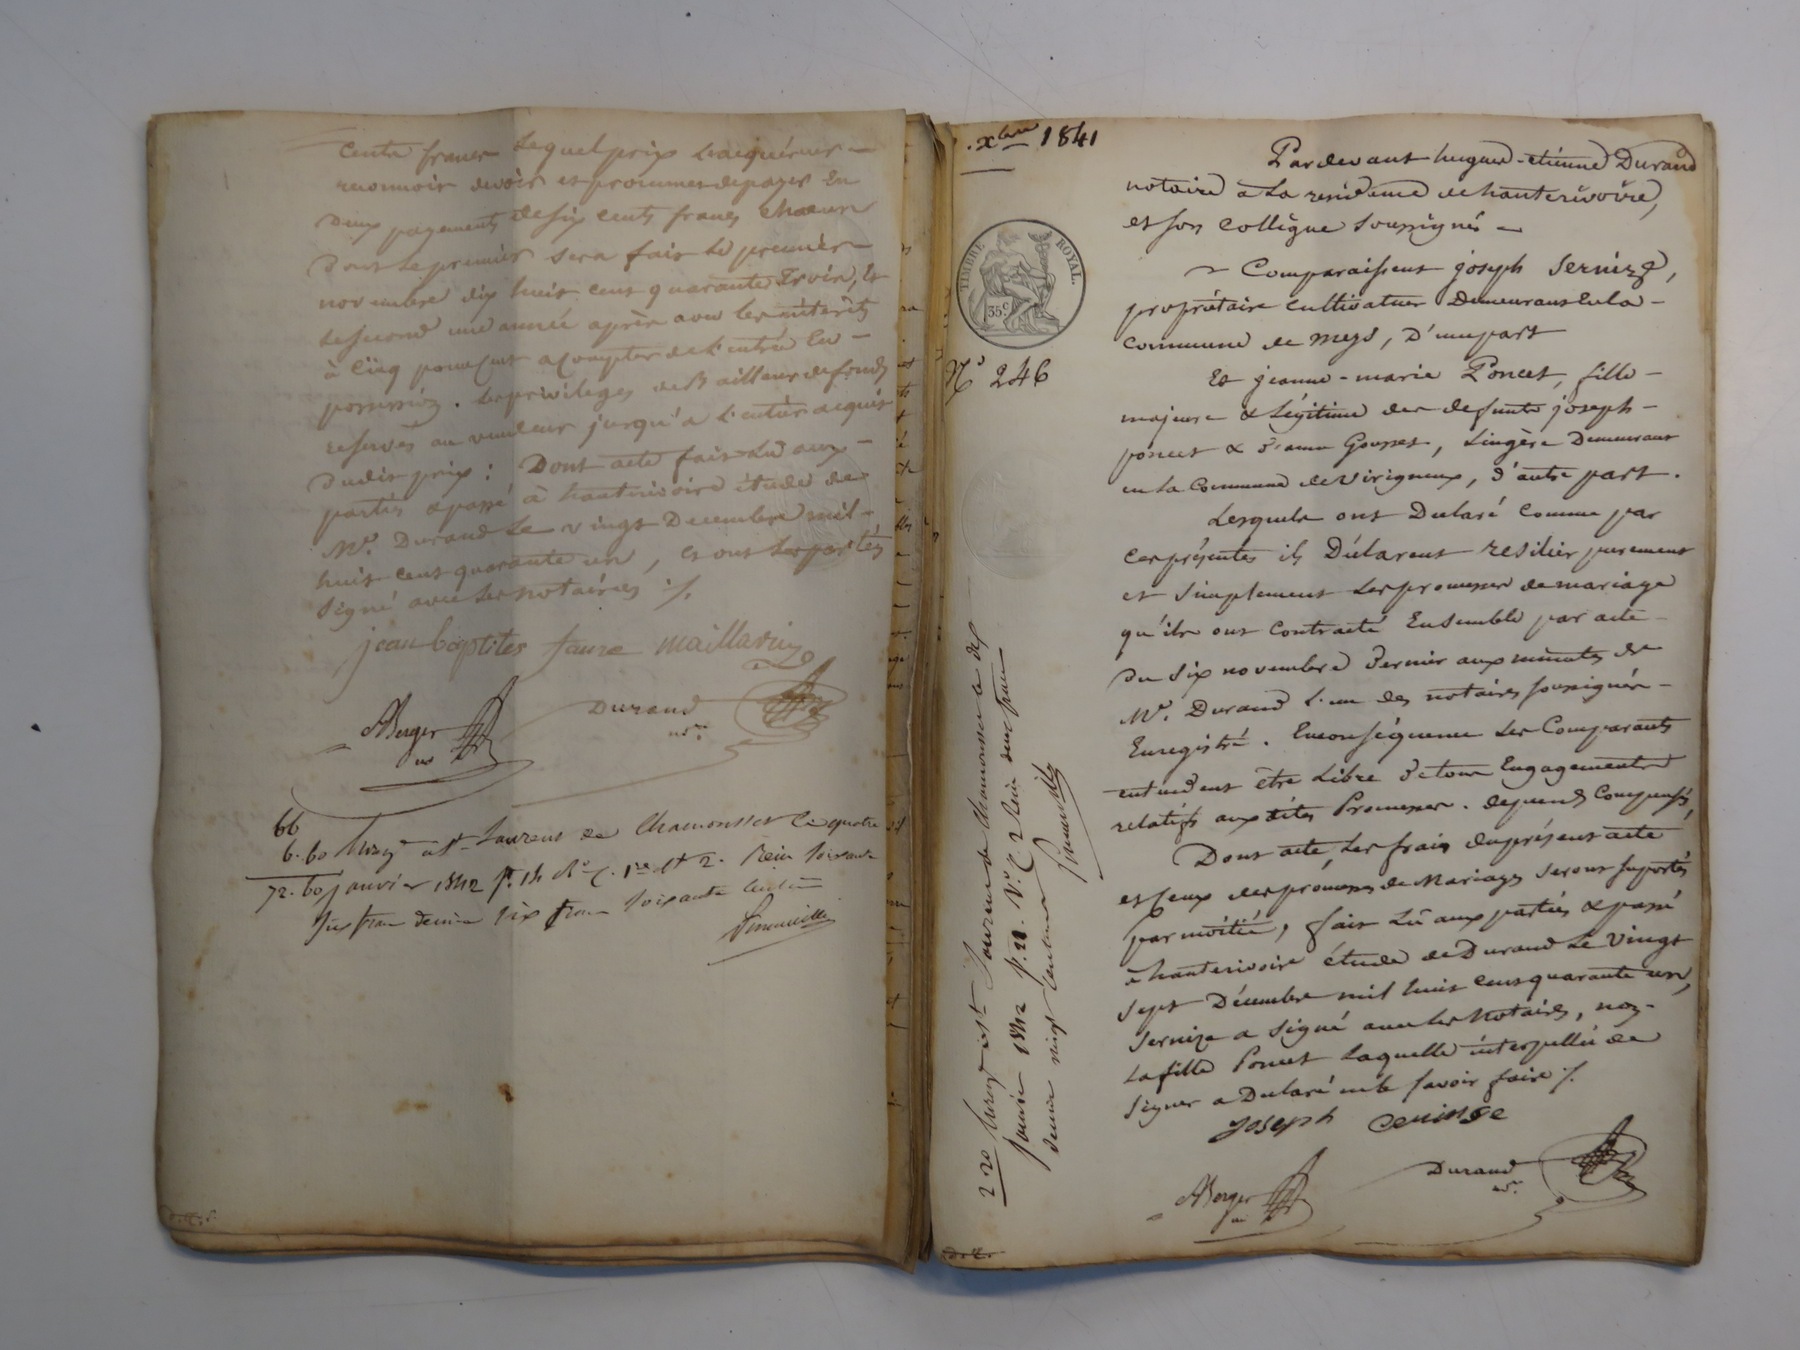 Cents francs Lequel prix L'acquéreur
reconnoit devoir et promet de payer En
Deux payements de six cents francs chacun
Dont Le premier sera fait Le premier
novembre dix huit cent quarante Trois, Et
Le second une année après avec les intérêts
à Cinq pour Cent à Compter de L'entrée En
possession. Les privilèges de Bailleur de fonds
reservés au vendeur jusqu'à L'entier acquit
Dudit prix : Dont acte fait Lu aux
parties & passé à hauterivoire étude de
Me. Durand Le vingt Decembre mil
huit cent quarante un, et ont Les parties
Signé avec Les notaires ./.
jean baptites faure maillavin
ABerger
Durand
nre
66
6.60
72.60
Enregé à St Laurent de Chamousset Le quatre
janvier 1842 f. Reçu soixante
six francs decime six francs soixante centimes
Xbre 1841
TIMBRE ROYAL
35 C
No 246
2 20
Enregé à St Laurent de Chamousset Le dix
janvier 1842 Reçu deux francs
decime vingt centimes
Par devant hugues-etienne Durand
notaire à La residence de hauterivoire,
et son collègue soussignés
Comparaissent joseph Sernize,
propriétaire cultivateur Demeurant En la
commune de meys, D'une part
Et jeanne-marie Poncet, fille
majeure & Légitime des defunts joseph
poncet & d'anne Gousset, Lingère Demeurant
en La Commune de Virigneux, d'autre part.
Lesquels ont Declaré comme par
Ces présentes ils Déclarent resilier purement
et simplement Les promesses de mariage
qu'ils ont Contracté Ensemble par acte
Du Six novembre dernier aux minutes de
Me. Durand L'un des notaires soussignés
Enregistré. En conséquence Les Comparants
entendent être Libre de tous Engagements
relatifs aux dites Promesses. depens Compensés,
Dont acte, Les frais du présent acte
et Ceux des promesses de Mariage seront suportés
par moitié, fait Lû aux parties & passé
à hauterivoire étude de Durand Le vingt
sept Décembre mil huit cent quarante un,
Sernize a signé avec les Notaires, non
La fille Poncet Laquelle interpellée de
signer a Declaré ne le savoir faire ./.
JOSEPH Cerinsse
ABerger
Durand
nre